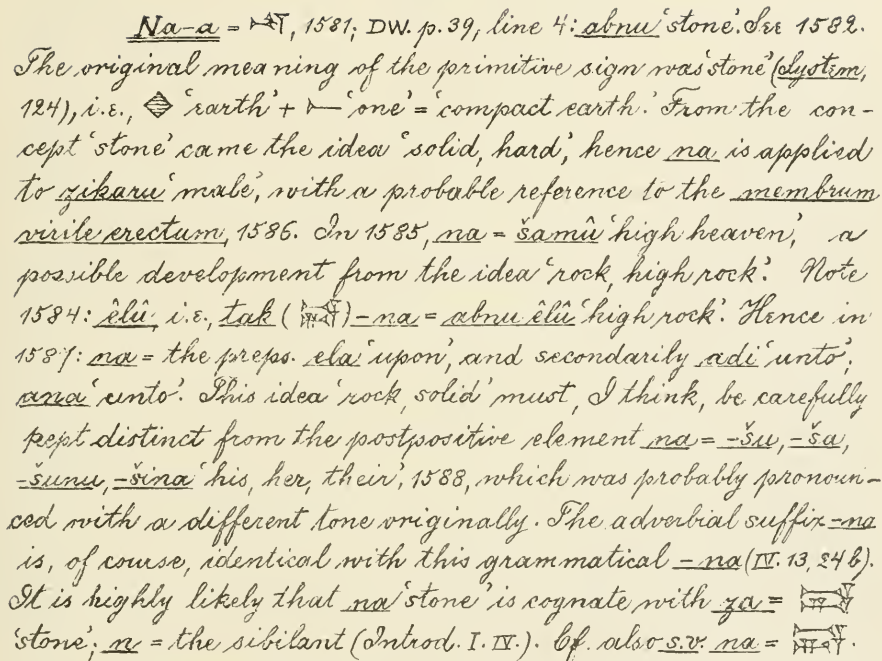 Na-a = 𒈾, 1581; DW. p. 39, line 4: abnu 'stone'. See 1582.
The original meaning of the primitive sign was 'stone' (System,
124), i.e., 'earth' + 𒀸 'one' = 'compact earth'. From the con-
cept 'stone' came the idea 'solid, hard', hence na is applied
to zikaru 'male', with a probable reference to the membrum
virile erectum, 1586. In 1585, na = šamû 'high heaven', a
possible development from the idea 'rock, high rock'. Note
1584: êlû, i.e., tak ( ) -na = abnu êlû 'high rock'. Hence in
1587: na = the preps. ela 'upon', and secondarily adi 'unto';
ana 'unto'. This idea 'rock, solid' must, I think, be carefully
kept distinct from the postpositive element na = -šu, -ša,
-šunu, -šina 'his, her, their', 1588, which was probably pronoun-
ced with a different tone originally. The adverbial suffix -na
is, of course, identical with this grammatical -na (IV. 13, 24 b).
It is highly likely that na 'stone' is cognate with za =
'stone'; n = the sibilant (Introd. I. IV.). Cf. also s.v. na = .